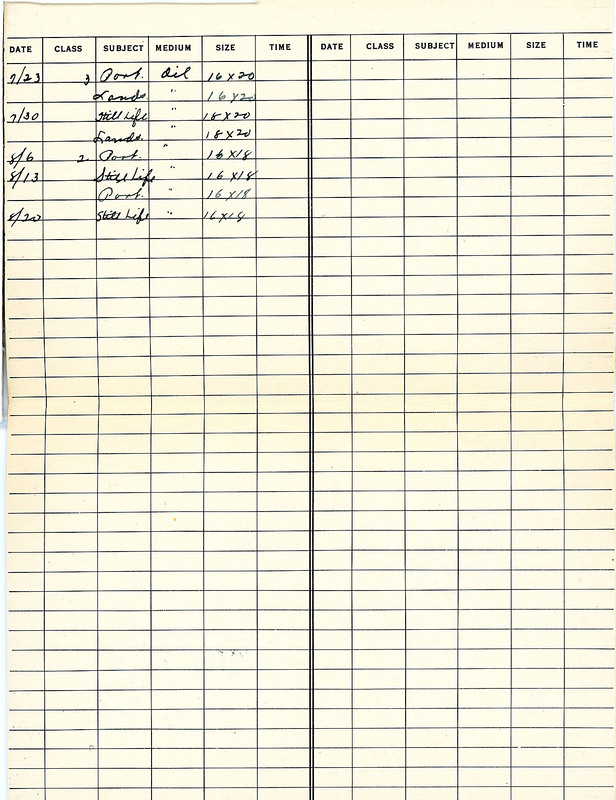 DATE CLASS SUBJECT MEDIUM SIZE TIME DATE CLASS SUBJECT MEDIUM SIZE TIME
7/23 3 Port. Oil 16 x 20
Lands. " 16 x 20
7/30 Still Life " 18 x 20
Lands. " 18 x 20
8/6 2 Port. " 16 x 18
8/13 Still Life " 16 x 18
Port. " 16 x 18
8/20 Still Life " 16 x 18